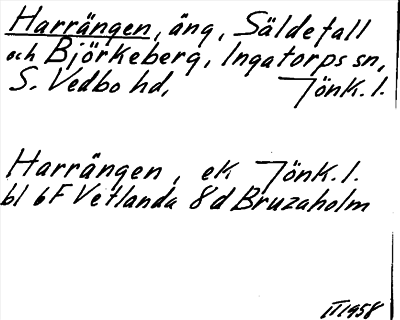 Harrängen, äng, Säldefall
och Björkeberg, Ingatorps sn,
S. Vedbo hd, Jönk. l.
Harrängen, ek Jönk. l.
bl 6F Vetlanda 8d Bruzaholm
III 1958